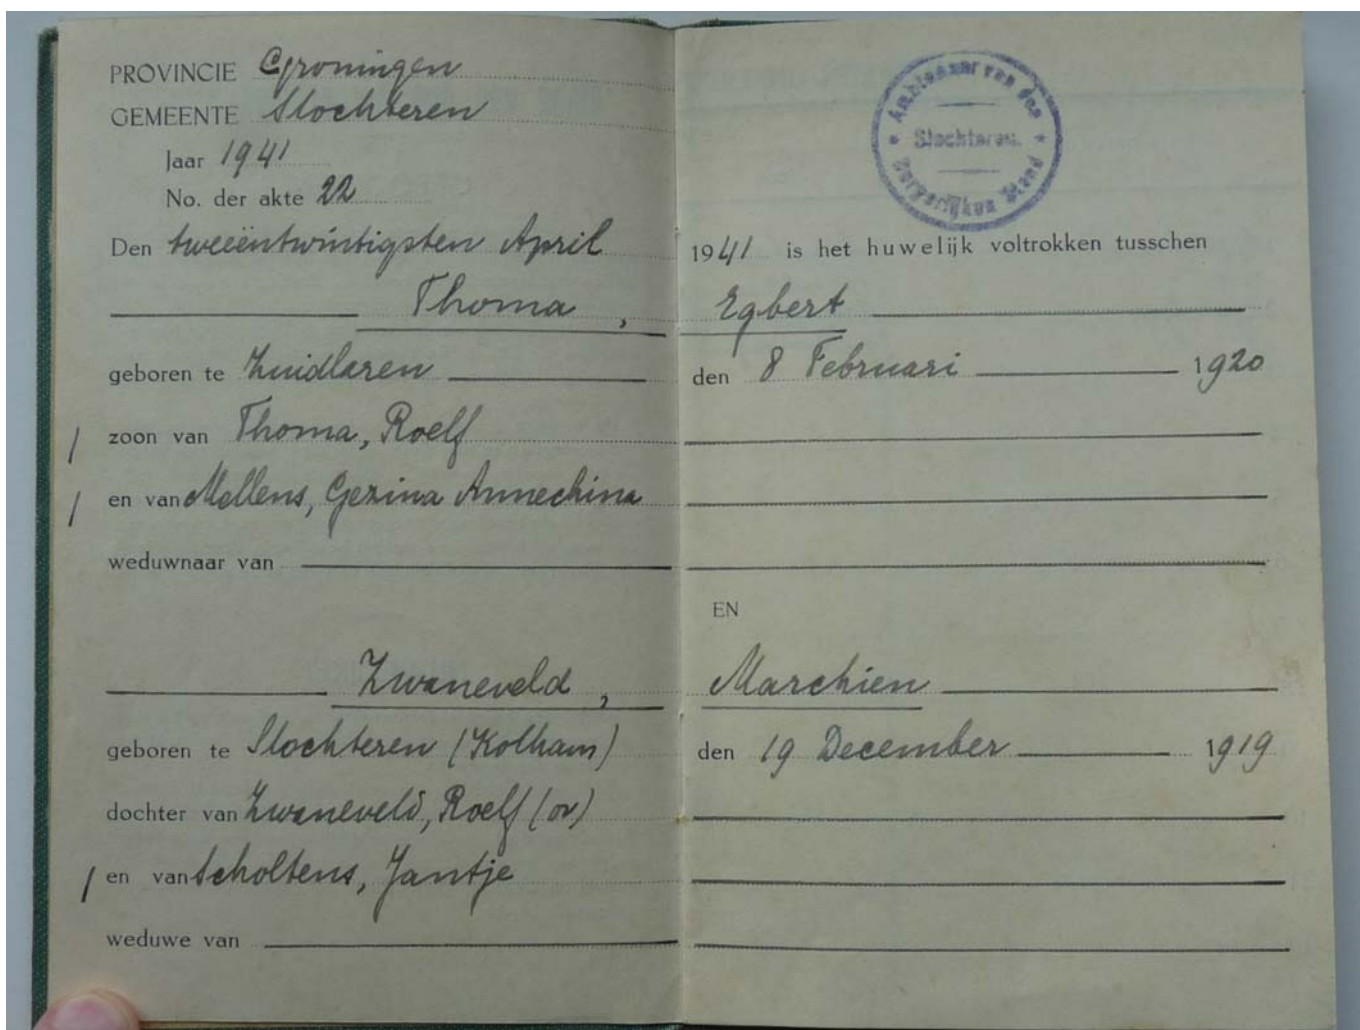 PROVINCIE Groningen
GEMEENTE Slochteren
Jaar 1941
No. der akte 22
Ambtenaar van den
Slochteren.
Burgerlijken Stand
Den tweeëntwintigsten April 1941 is het huwelijk voltrokken tusschen
Thoma, Egbert
geboren te Zuidlaren den 8 Februari 1920
zoon van Thoma, Roelf
en van Mellens, Gezina Annechina
weduwnaar van
EN
Zwaneveld, Marchien
geboren te Slochteren (Kolham) den 19 December 1919
dochter van Zwaneveld, Roelf (ov)
en van Scholtens, Jantje
weduwe van